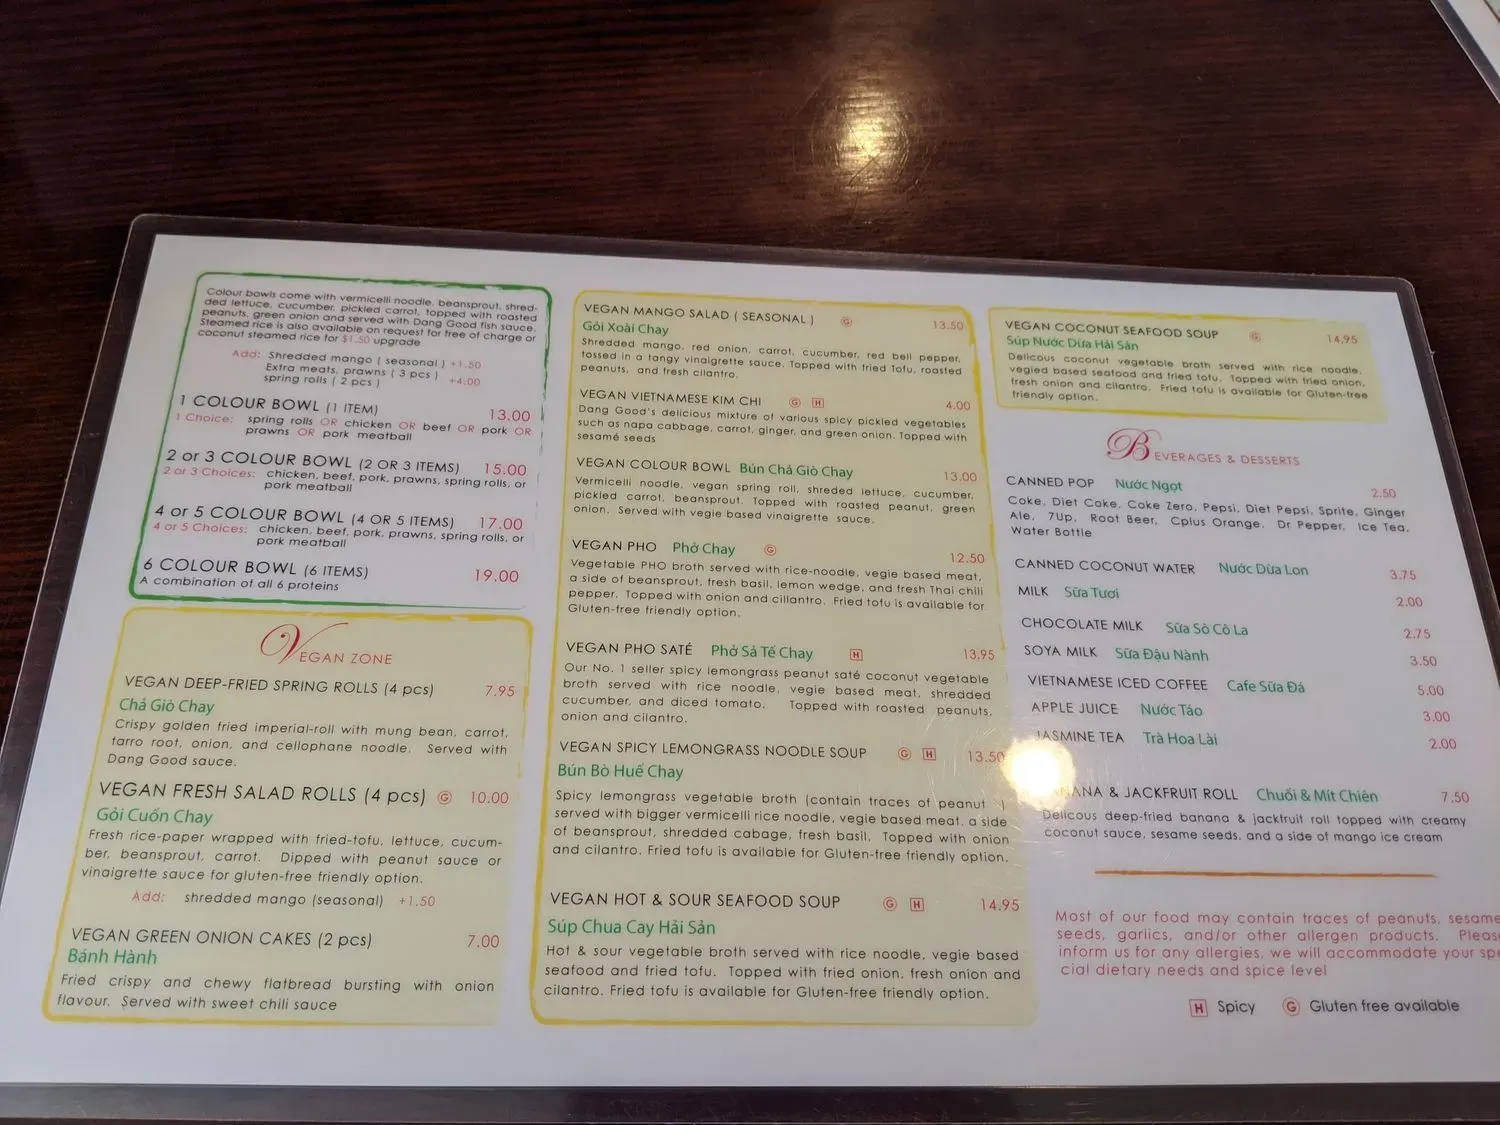 Colour bowls come with vermicelli noodle, beansprout, shred-
ded lettuce, cucumber, pickled carrot, topped with roasted
peanuts, green onion and served with Dang Good fish sauce.
Steamed rice is also available on request for free of charge or
coconut steamed rice for $1.50 upgrade
Add: Shredded mango ( seasonal ) +1.50
Extra meats, prawns ( 3 pcs )
spring rolls ( 2 pcs ) +4.00
1 COLOUR BOWL (1 ITEM) 13.00
1 Choice: spring rolls OR chicken OR beef OR pork OR
prawns OR pork meatball
2 or 3 COLOUR BOWL (2 OR 3 ITEMS) 15.00
2 or 3 Choices: chicken, beef, pork, prawns, spring rolls, or
pork meatball
4 or 5 COLOUR BOWL (4 OR 5 ITEMS) 17.00
4 or 5 Choices: chicken, beef, pork, prawns, spring rolls, or
pork meatball
6 COLOUR BOWL (6 ITEMS) 19.00
A combination of all 6 proteins
VEGAN ZONE
VEGAN DEEP-FRIED SPRING ROLLS (4 pcs) 7.95
Chả Giò Chay
Crispy golden fried imperial-roll with mung bean, carrot,
tarro root, onion, and cellophane noodle. Served with
Dang Good sauce.
VEGAN FRESH SALAD ROLLS (4 pcs) G 10.00
Gỏi Cuốn Chay
Fresh rice-paper wrapped with fried-tofu, lettuce, cucum-
ber, beansprout, carrot. Dipped with peanut sauce or
vinaigrette sauce for gluten-free friendly option.
Add: shredded mango (seasonal) +1.50
VEGAN GREEN ONION CAKES (2 pcs) 7.00
Bánh Hành
Fried crispy and chewy flatbread bursting with onion
flavour. Served with sweet chili sauce
VEGAN MANGO SALAD ( SEASONAL ) G 13.50
Gỏi Xoài Chay
Shredded mango, red onion, carrot, cucumber, red bell pepper,
tossed in a tangy vinaigrette sauce. Topped with fried Tofu, roasted
peanuts, and fresh cilantro.
VEGAN VIETNAMESE KIM CHI G H 4.00
Dang Good's delicious mixture of various spicy pickled vegetables
such as napa cabbage, carrot, ginger, and green onion. Topped with
sesamé seeds
VEGAN COLOUR BOWL Bún Chả Giò Chay 13.00
Vermicelli noodle, vegan spring roll, shreded lettuce, cucumber,
pickled carrot, beansprout. Topped with roasted peanut, green
onion. Served with vegie based vinaigrette sauce.
VEGAN PHO Phở Chay G 12.50
Vegetable PHO broth served with rice-noodle, vegie based meat,
a side of beansprout, fresh basil, lemon wedge, and fresh Thai chili
pepper. Topped with onion and cillantro. Fried tofu is available for
Gluten-free friendly option.
VEGAN PHO SATÉ Phở Sả Tế Chay H 13.95
Our No. 1 seller spicy lemongrass peanut saté coconut vegetable
broth served with rice noodle, vegie based meat, shredded
cucumber, and diced tomato. Topped with roasted peanuts,
onion and cilantro.
VEGAN SPICY LEMONGRASS NOODLE SOUP G H 13.50
Bún Bò Huế Chay
Spicy lemongrass vegetable broth (contain traces of peanut )
served with bigger vermicelli rice noodle, vegie based meat, a side
of beansprout, shredded cabage, fresh basil. Topped with onion
and cilantro. Fried tofu is available for Gluten-free friendly option.
VEGAN HOT & SOUR SEAFOOD SOUP G H 14.95
Súp Chua Cay Hải Sản
Hot & sour vegetable broth served with rice noodle, vegie based
seafood and fried tofu. Topped with fried onion, fresh onion and
cilantro. Fried tofu is available for Gluten-free friendly option.
VEGAN COCONUT SEAFOOD SOUP G 14.95
Súp Nước Dừa Hải Sản
Delicous coconut vegetable broth served with rice noodle,
vegied based seafood and fried tofu. Topped with fried onion,
fresh onion and cilantro. Fried tofu is available for Gluten-free
friendly option.
BEVERAGES & DESSERTS
CANNED POP Nước Ngọt 2.50
Coke, Diet Coke, Coke Zero, Pepsi, Diet Pepsi, Sprite, Ginger
Ale, 7Up, Root Beer, Cplus Orange, Dr Pepper, Ice Tea,
Water Bottle
CANNED COCONUT WATER Nước Dừa Lon 3.75
MILK Sữa Tươi 2.00
CHOCOLATE MILK Sữa Sô Cô La 2.75
SOYA MILK Sữa Đậu Nành 3.50
VIETNAMESE ICED COFFEE Cafe Sữa Đá 5.00
APPLE JUICE Nước Táo 3.00
JASMINE TEA Trà Hoa Lài 2.00
& JACKFRUIT ROLL Chuối & Mít Chiên 7.50
Delicous deep-fried banana & jackfruit roll topped with creamy
coconut sauce, sesame seeds, and a side of mango ice cream
Most of our food may contain traces of peanuts, sesame
seeds, garlics, and/or other allergen products. Pleas
inform us for any allergies, we will accommodate your spe
cial dietary needs and spice level
H Spicy G Gluten free available